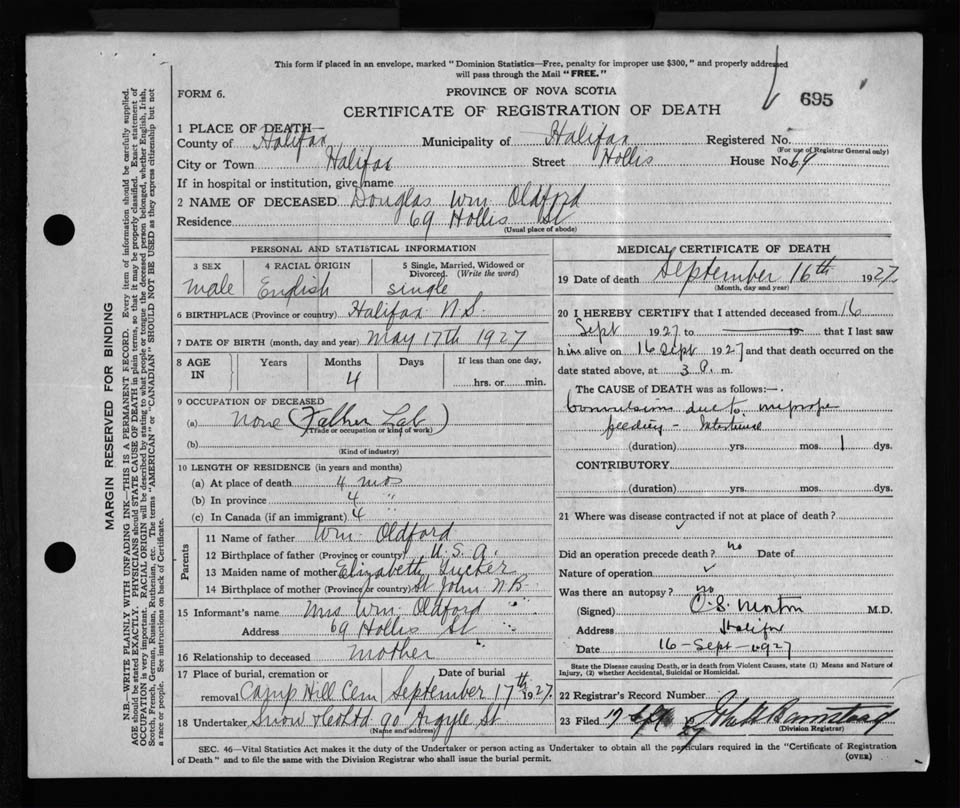 This form if placed in an envelope, marked "Dominion Statistics—Free, penalty for improper use $300," and properly addressed
will pass through the Mail "FREE."
FORM 6.
PROVINCE OF NOVA SCOTIA
695
CERTIFICATE OF REGISTRATION OF DEATH
1 PLACE OF DEATH—
County of Halifax Municipality of Halifax Registered No.
(For use of Registrar General only)
City or Town Halifax Street Hollis House No. 69
If in hospital or institution, give name
2 NAME OF DECEASED Douglas Wm Oldford
Residence 69 Hollis St
(Usual place of abode)
PERSONAL AND STATISTICAL INFORMATION
3 SEX 4 RACIAL ORIGIN 5 Single, Married, Widowed or
Divorced. (Write the word)
male English single
6 BIRTHPLACE (Province or country) Halifax N.S.
7 DATE OF BIRTH (month, day and year) May 17th 1927
8 AGE IN Years Months Days If less than one day,
4 hrs. or min.
9 OCCUPATION OF DECEASED
(a) none (Father Lab)
(Trade or occupation or kind of work)
(b)
(Kind of industry)
10 LENGTH OF RESIDENCE (in years and months)
(a) At place of death 4 mos
(b) In province 4 "
(c) In Canada (if an immigrant) 4 "
Parents
11 Name of father Wm. Oldford
12 Birthplace of father (Province or country) U.S.A.
13 Maiden name of mother Elizabeth Tucker
14 Birthplace of mother (Province or country) St John N.B.
15 Informant's name Mrs Wm. Oldford
Address 69 Hollis St
16 Relationship to deceased mother
17 Place of burial, cremation or
removal Camp Hill Cem September 17th 1927
18 Undertaker, Snow & Co Ltd 90 Argyle St
(Name and address)
MEDICAL CERTIFICATE OF DEATH
19 Date of death September 16th 1927
(Month, day and year)
20 I HEREBY CERTIFY that I attended deceased from 16
Sept 1927 to 19 that I last saw
him alive on 16 Sept 1927 and that death occurred on the
date stated above, at 3 P. m.
The CAUSE of DEATH was as follows:—
Convulsions due to improper
feeding —
(duration) yrs. mos. 1 dys.
CONTRIBUTORY
(duration) yrs. mos. dys.
21 Where was disease contracted if not at place of death?
Did an operation precede death? no Date of
Nature of operation
Was there an autopsy? no
(Signed) M.D.
Address Halifax
Date 16 - Sept - 1927
State the Disease causing Death, or in death from Violent Causes, state (1) Means and Nature of
Injury, (2) whether Accidental, Suicidal or Homicidal.
22 Registrar's Record Number
23 Filed 17 Sept 19 27
(Division Registrar)
SEC. 46—Vital Statistics Act makes it the duty of the Undertaker or person acting as Undertaker to obtain all the particulars required in the "Certificate of Registration
of Death" and to file the same with the Division Registrar who shall issue the burial permit.
(OVER)
MARGIN RESERVED FOR BINDING
N.B.—WRITE PLAINLY WITH UNFADING INK—THIS IS A PERMANENT RECORD. Every item of information should be carefully supplied.
AGE should be stated EXACTLY. PHYSICIANS should STATE CAUSE OF DEATH in plain terms, so that it may be properly classified. Exact statement of
OCCUPATION is very important. RACIAL ORIGIN will be described by stating to what people or tongue the deceased person belonged, whether English, Irish,
Scotch, French, German, Russian, Ruthenian, etc. The terms "AMERICAN" or "CANADIAN" SHOULD NOT BE USED as they express citizenship but not
a race or people. See instructions on back of Certificate.